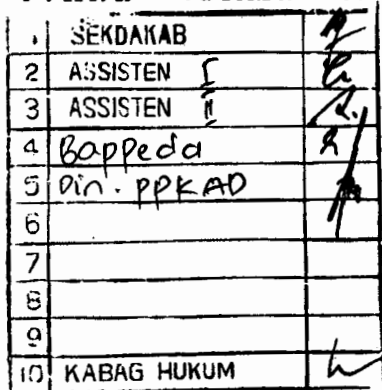 SEKDAKAB
2 ASSISTEN I
3 ASSISTEN II
4 Bappeda
5 Din. PPKAD
6
7
8
9
10 KABAG HUKUM